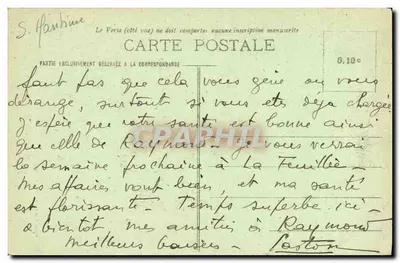 S. Maritime
Le Verso (côté vue) ne doit comporter aucune inscription manuscrite
CARTE POSTALE
PARTIE EXCLUSIVEMENT RÉSERVÉE A LA CORRESPONDANCE
0.10c
faut pas que cela vous gêne ou vous
dérange, surtout si vous êtes déjà chargée
J'espère que votre santé est bonne ainsi
que celle de Raymond - Je vous verrai
la semaine prochaine à La Feuillée -
Mes affaires vont bien, et ma santé
est florissante - Temps superbe ici -
à bientôt, mes amitiés à Raymond
Meilleurs baisers - Gaston
CPAPHIL